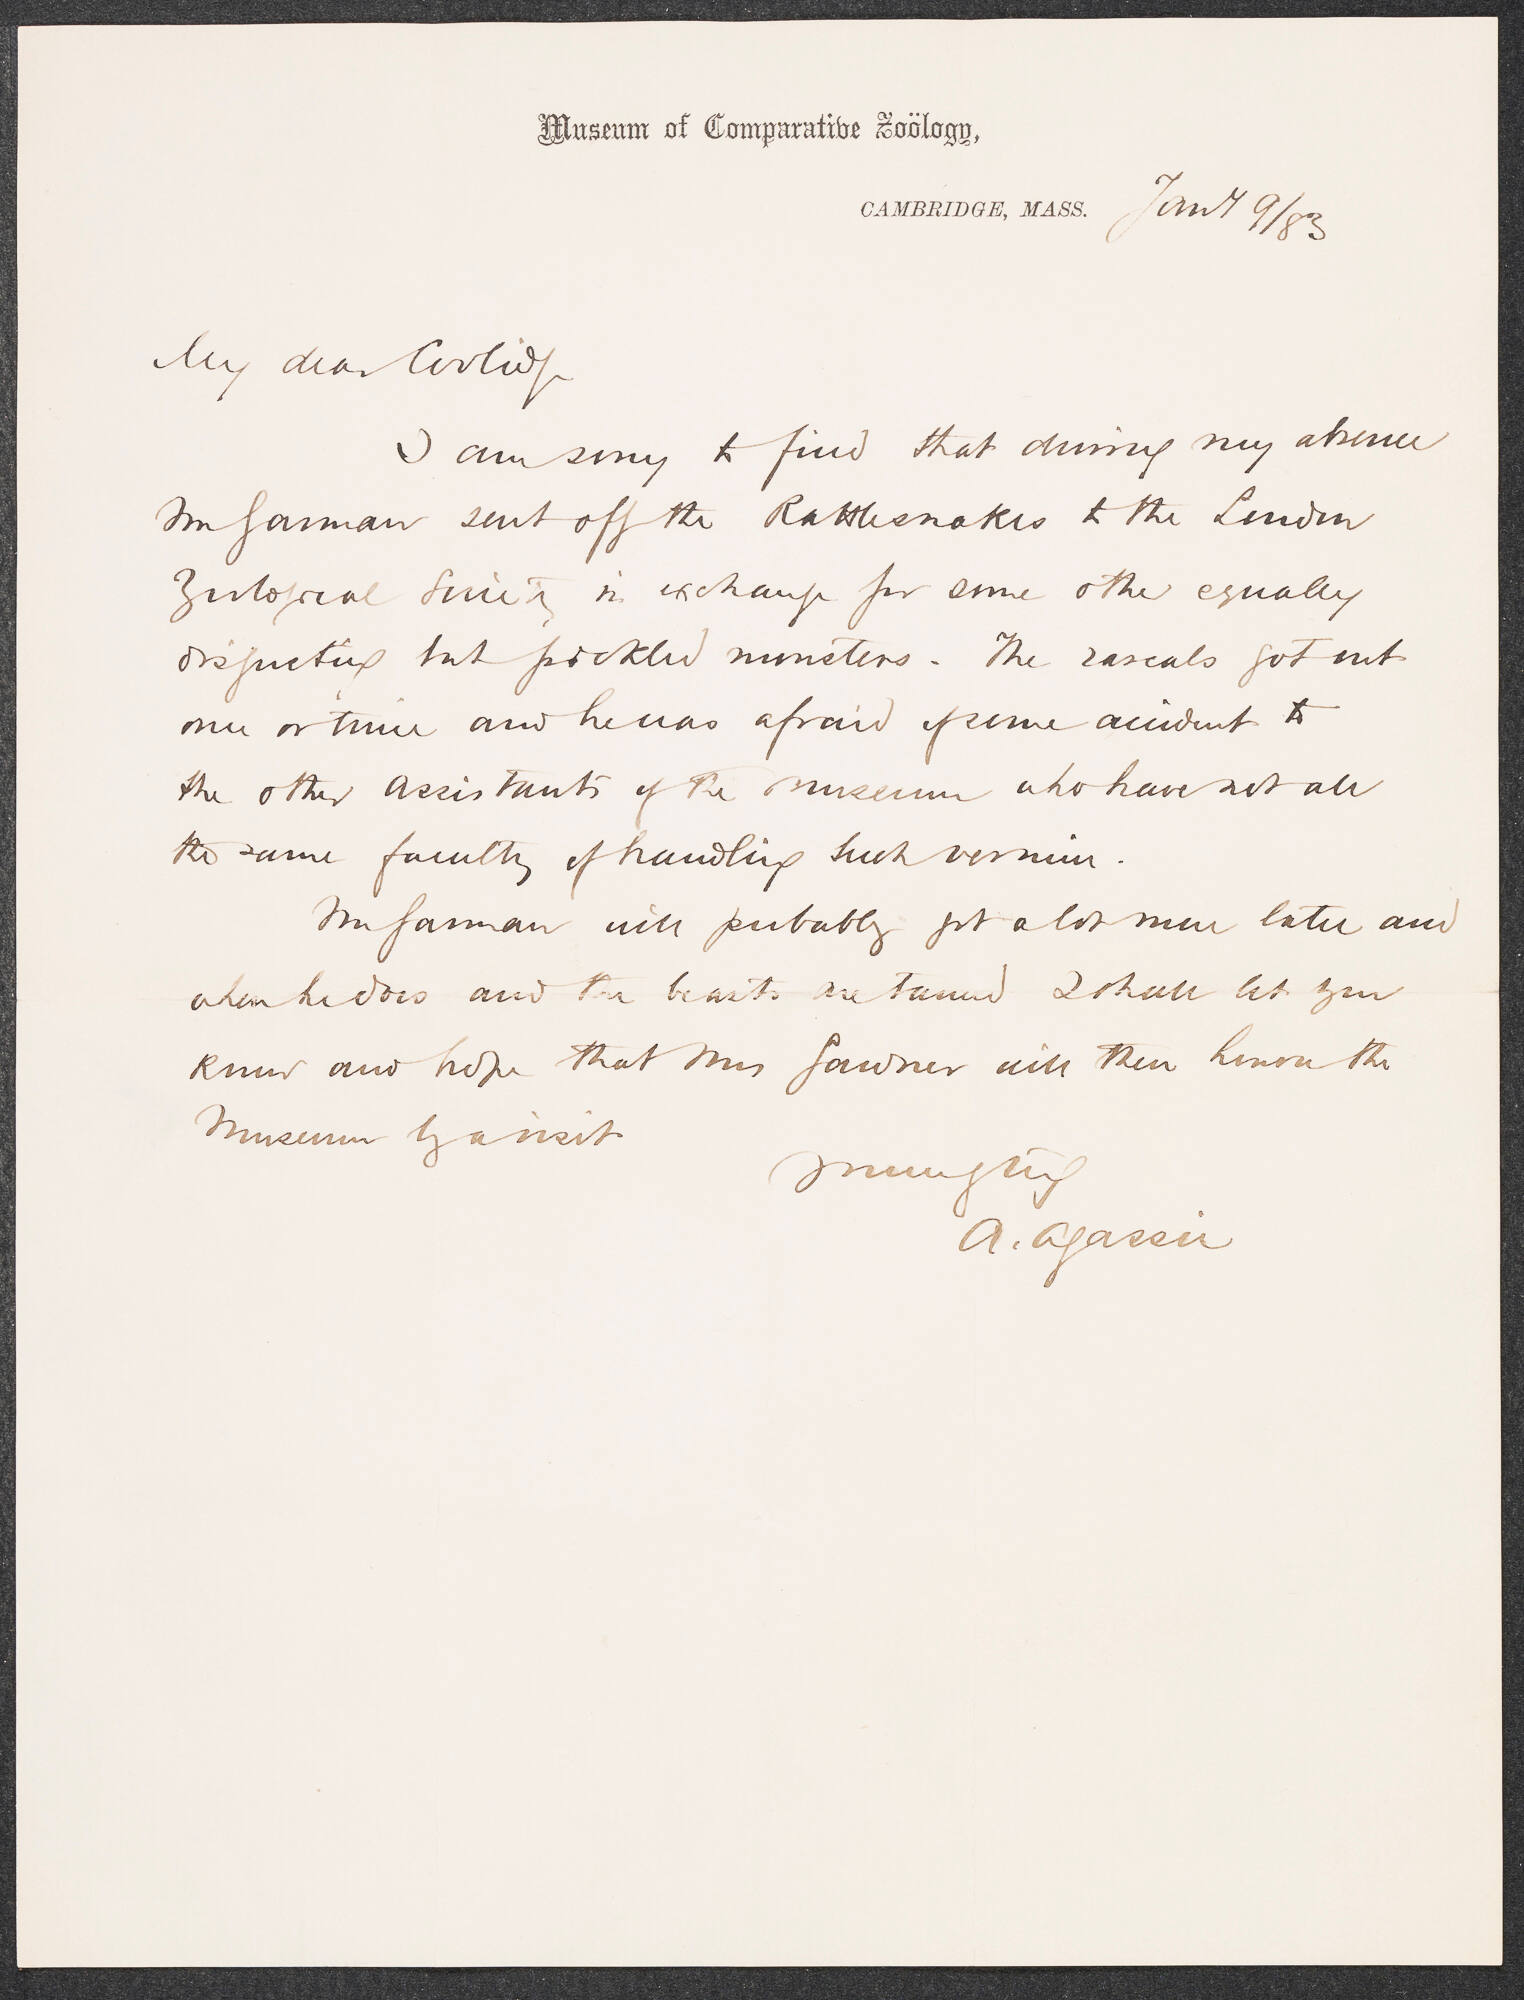 Museum of Comparative Zoölogy,
CAMBRIDGE, MASS. Jany 9/83
My dear Coolidge
I am sorry to find that during my absence
Mr Garman sent off the Rattlesnakes to the London
Zoological Society in exchange for some other equally
disgusting but pickled monsters. The rascals got out
once or twice and he was afraid of some accident to
the other Assistants of the Museum who have not all
the same faculty of handling such vermin.
Mr Garman will probably get a lot more later and
when he does and the beasts are tamed I shall let you
know and hope that Mrs Gardner will then honor the
Museum by a visit
Yours truly
A. Agassiz